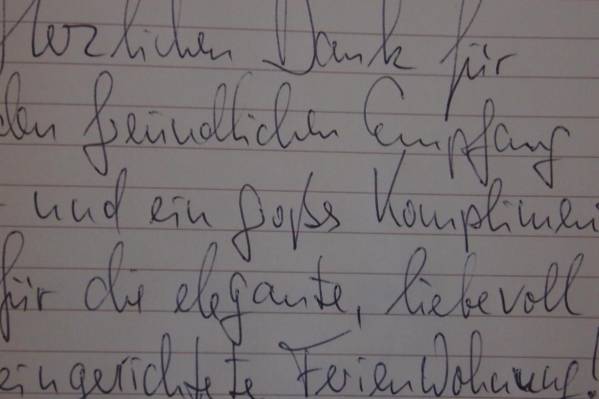 Herzlichen Dank für
den freundlichen Empfang
- und ein großes Kompliment
für die elegante, liebevoll
eingerichtete Ferienwohnung!